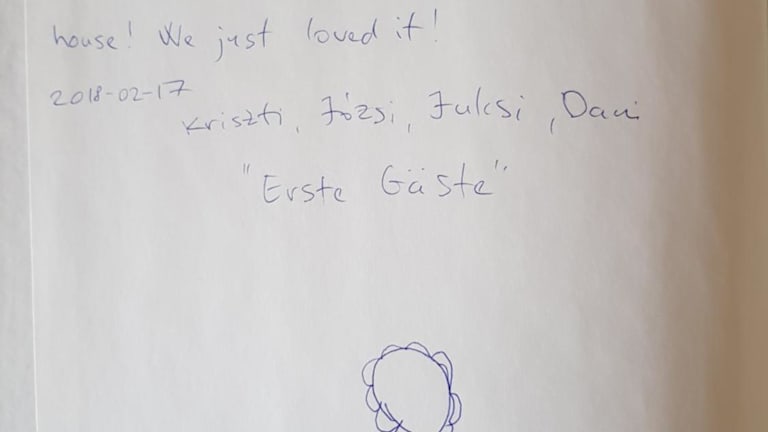 house! We just loved it!
2018-02-17
Kriszti, Józsi, Julcsi, Dani
"Erste Gäste"